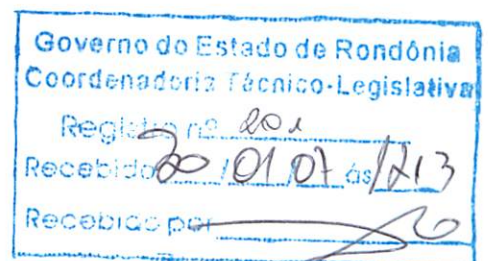 Governo do Estado de Rondônia
Coordenadoria Técnico-Legislativa
Registro nº 201
Recebido /01/07 às
Recebido por